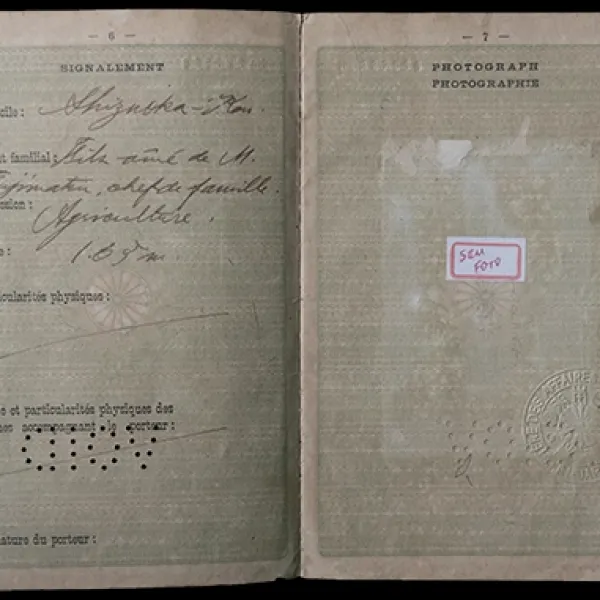 — 6 —
SIGNALEMENT
cile : Shizuoka-Ken.
t familial : Fils aîné de M.
chef de famille.
ssion :
Agriculture.
e : 1.65 m.
icularités physiques :
e et particularités physiques des
nes accompagnant le porteur :
nature du porteur :
— 7 —
PHOTOGRAPH
PHOTOGRAPHIE
SEM
FOTO
DES AFFAIRE